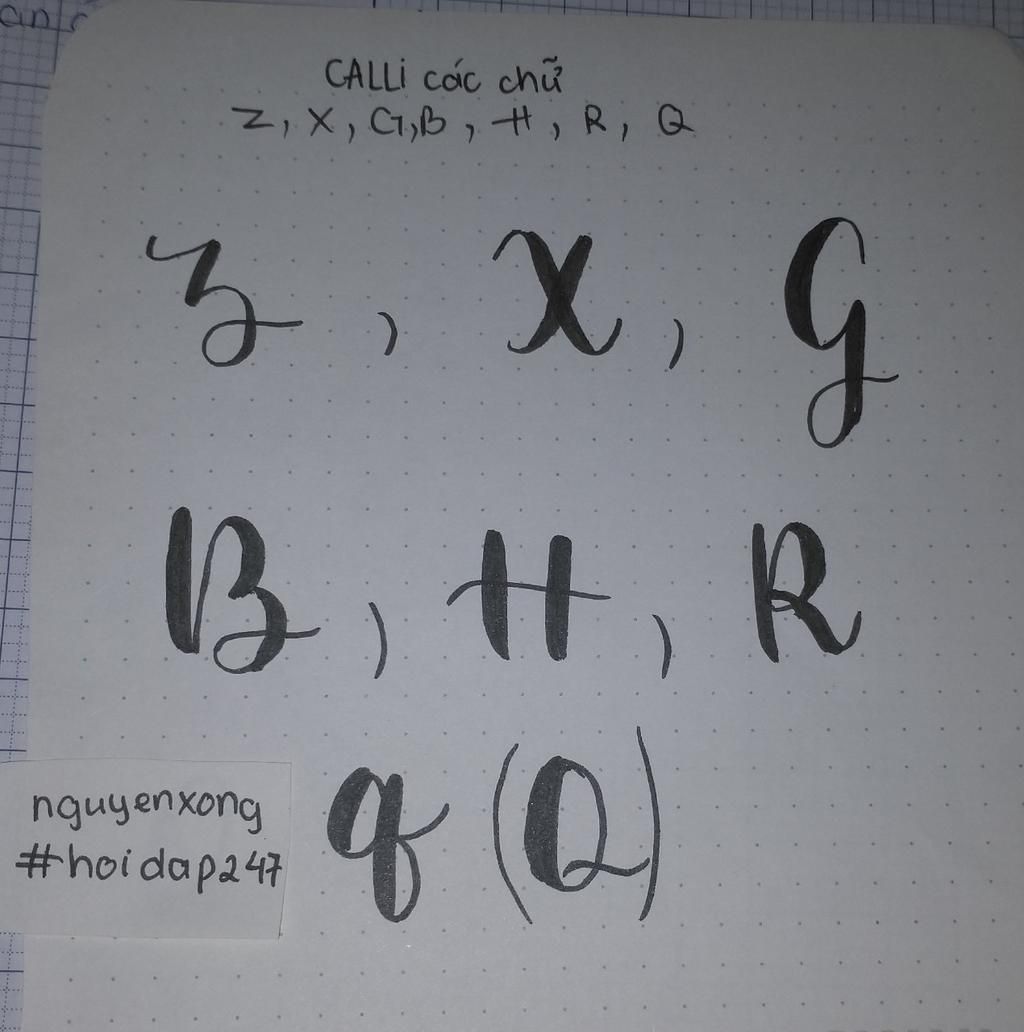 CALLi các chữ
Z, X, G, B, H, R, Q
Z, X, G
B, H, R
q (Q)
nguyenxong
#hoidap247